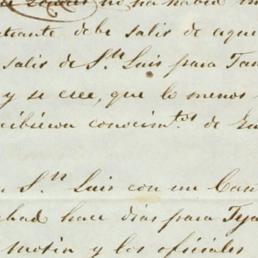 no ha habid
debe salir de aqui
salir de S.n Luis para Tam
y se cree, que lo menos
cibieron conocim.tos de
S.n Luis con un Cañ
hace dias para Teja
Motin y los oficiales